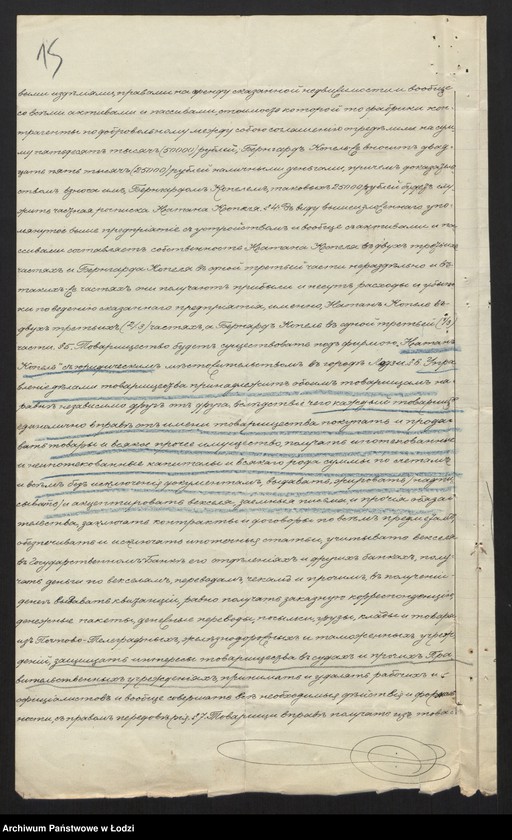 15
выми изделіями, правами на аренду сказанной недвижимости и вообще
со всеми активами и пассивами, стоимость которой то фабрики кон-
трагенты по добровольному между собою соглашенію определили на сум-
му пятьдесятъ тысячъ (50000) рублей, Бернгардъ Копель же вноситъ двад-
цать пять тысячъ (25000) рублей наличными деньгами, причемъ доказатель-
ствомъ взноса имъ, Бернгардомъ Копелемъ, таковыхъ 25000 рублей будетъ слу-
жить частная росписка Натана Копеля. §4. Въ виду вышеизложеннаго упо-
мянутое выше предпріятіе съ устройствомъ и вообще съ активами и пас-
сивами составляетъ собственность Натана Копеля въ двухъ третьихъ
частяхъ и Бернгарда Копеля въ одной третьей части нераздельно и въ
такихъ же частяхъ они получаютъ прибыли и несутъ расходы и убыт-
ки по веденію сказаннаго предпріятія, именно, Натанъ Копель въ
двухъ третьихъ (2/3) частяхъ, а Бернардъ Копель въ одной третьей (1/3)
части. §5. Товарищество будетъ существовать подъ фирмою "Натанъ
Копель" съ юридическимъ местожительствомъ въ городе Лодзи. §6. Упра-
вленіе делами товарищества принадлежитъ обоимъ товарищамъ на-
равне независимо другъ отъ друга, вследствіе чего каждый товарищъ
единолично вправе отъ имени товарищества покупать и прода-
вать товары и всякое прочее имущество, получать ипотекованные
и неипотекованные капиталы и всякаго рода суммы по
и всемъ безъ исключенія документамъ, выдавать, жировать /надпи-
сывать/ и акцептировать векселя, заемныя письма и прочія обяза-
тельства, заключать контракты и договоры по всемъ предметамъ,
обезпечивать и исключать ипотечныя статьи, учитывать векселя
въ Государственномъ Банке его отделеніяхъ и другихъ банкахъ, полу-
чать деньги по векселямъ, переводамъ, чекамъ и прочимъ, въ полученіи
денегъ выдавать квитанціи, равно получать заказную корреспонденцію,
денежные пакеты, денежные переводы, посылки, грузы, клади и товары
изъ Почтово-Телеграфныхъ, железнодорожныхъ и таможенныхъ учреж-
деній, защищать интересы товарищества въ судахъ и прочихъ Пра-
вительственныхъ учрежденіяхъ, принимать и удалять рабочихъ и
оффиціалистовъ и вообще совершать все необходимыя действія и формаль-
ности, съ правомъ передоверія. §7. Товарищи вправе получать изъ това-
Archiwum Państwowe w Łodzi